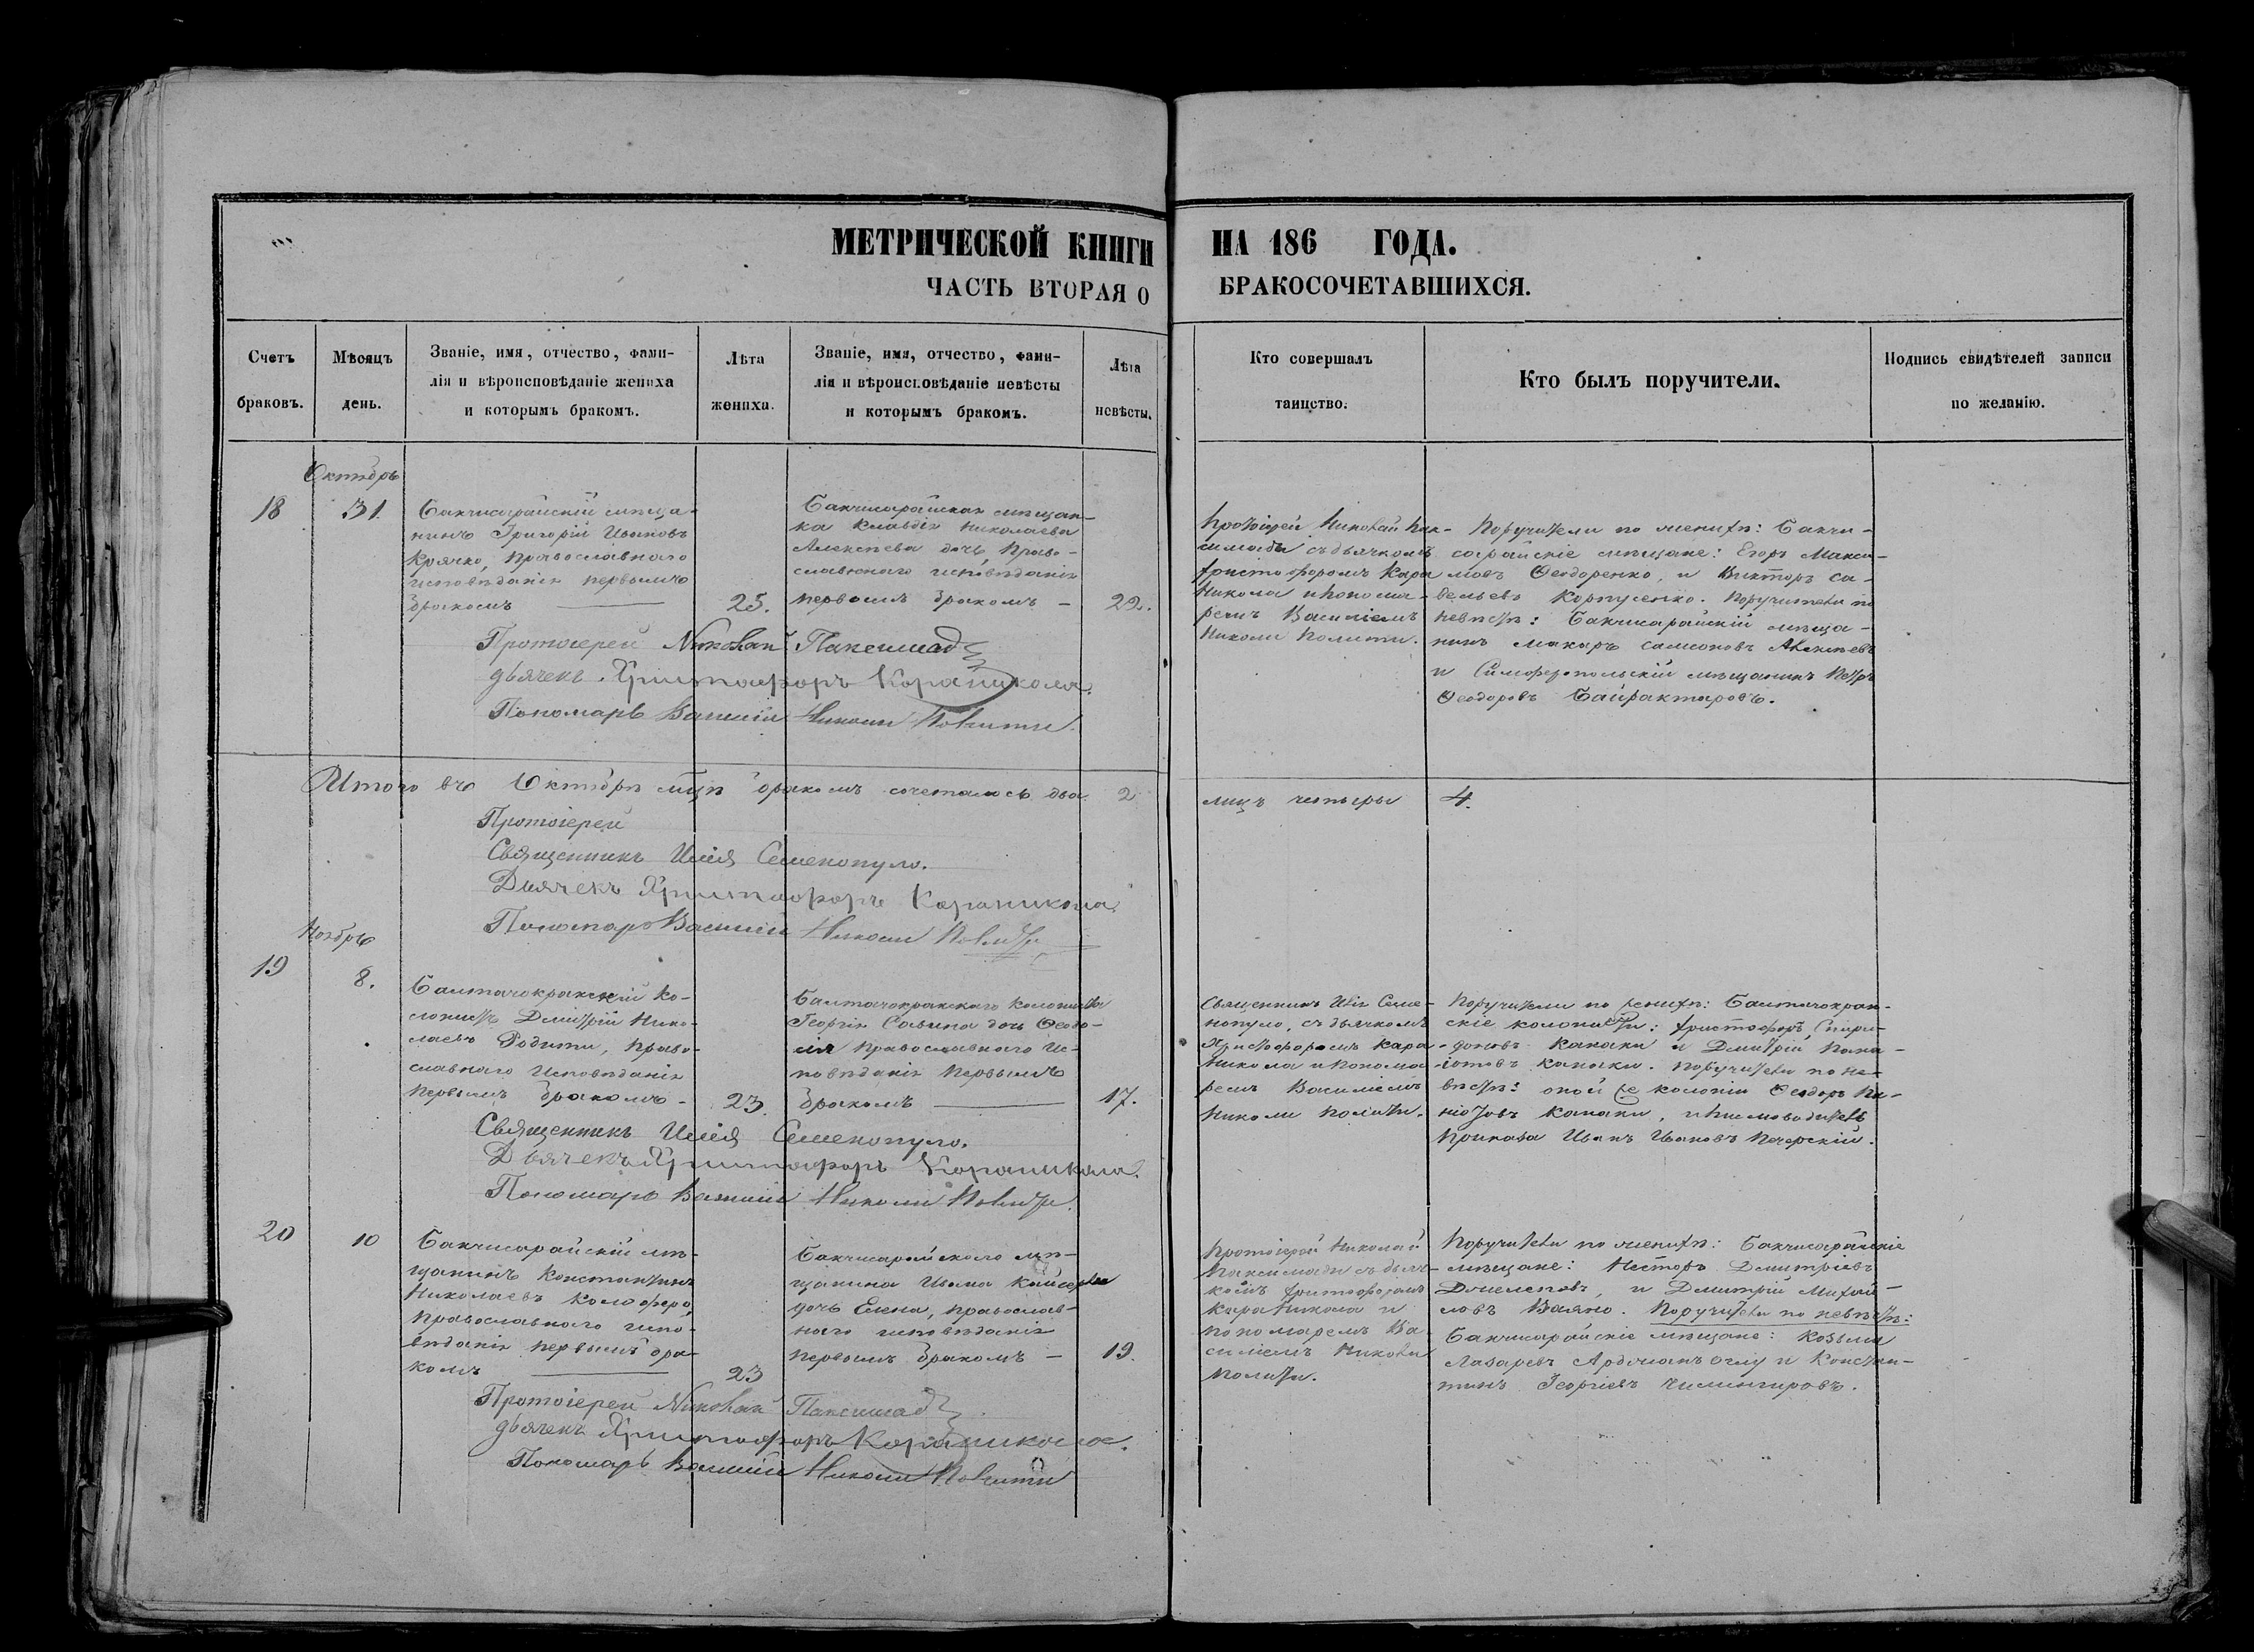 МЕТРИЧЕСКОЙ КНИГИ НА 186 ГОДА.
ЧАСТЬ ВТОРАЯ О БРАКОСОЧЕТАВШИХСЯ.
Счетъ браковъ.
Мѣсяцъ день.
Званіе, имя, отчество, фами-
лія и вѣроисповѣданіе жениха
и которымъ бракомъ.
Лѣта
жениха.
Званіе, имя, отчество, фами-
лія и вѣроисповѣданіе невѣсты
и которымъ бракомъ.
Лѣта
невѣсты.
Кто совершалъ
таинство.
Кто былъ поручители.
Подпись свидѣтелей записи
по желанію.
Октябрь
18
31.
Бакчисарайскій мѣща-
нинъ Григорій Ивановъ
Крячко, православнаго
исповѣданія первымъ
бракомъ
25.
Бакчисарайская мѣщан-
ка Клавдія Николаева
Алексѣева дочь, право-
славнаго исповѣданія
первымъ бракомъ
22.
Протоіерей Николай Пак-
симади съ дьячкомъ
Христофоромъ Кара
Никола и понома-
ремъ Василіемъ
Николи Полити.
Поручители по женихѣ: Бакчи-
сарайскіе мѣщане: Егоръ Макси-
мовъ Феодоренко, и Викторъ Са-
вельевъ Корпусенко. Поручители по
невѣстѣ: Бакчисарайскій мѣща-
нинъ Макаръ Самсоновъ Алексѣевъ
и Симферопольскій мѣщанинъ Петръ
Феодоровъ Байрактаровъ.
Протоіерей Николай Паксимад
дьячекъ Христофоръ Караникола.
Пономарь Василій Николи Полити.
Итого въ Октябрѣ мцѣ бракомъ сочеталось два 2 лицъ четыре 4.
Протоіерей
Священникъ Илія Семенопуло.
Дьячекъ Христофоръ Караникола.
Пономарь Василій Николи Полити
Ноябрь
19
8.
Балтачокракскій ко-
лонистъ Дмитрій Нико-
лаевъ Родити, право-
славнаго исповѣданія
первымъ бракомъ
23.
Балтачокракскаго колониста
Георгія Савина дочь Феодо-
сія православнаго ис-
повѣданія первымъ
бракомъ
17.
Священникъ Илія Семе-
нопуло, съ дьячкомъ
Христофоромъ Кара
Никола и понома
ремъ Василіемъ
Николи Полити.
Поручители по женихѣ: Балтачокрак-
скіе колонисты: Христофоръ Спири-
доновъ Канаки и Дмитрій Пана-
іотовъ Канаки. Поручители по не-
вѣстѣ: оной же колоніи Феодоръ
Канаки, и письмоводитель
приказа Иванъ Ивановъ Печерскій.
Священникъ Илія Семенопуло.
Дьячекъ Христофоръ Караникола.
Пономарь Василій Николи Полити.
20
10
Бакчисарайскій мѣ-
щанинъ Константинъ
Николаевъ Колофоро,
православнаго испо-
вѣданія первымъ бра-
комъ
23
Бакчисарайскаго мѣ-
щанина Ивана
дочь Елена, православ-
наго исповѣданія
первымъ бракомъ
19.
Протоіерей Николай
Паксимади съ дьяч-
комъ Христофоромъ
Кара Никола и
пономаремъ Ва
силіемъ Николи
Полити.
Поручители по женихѣ: Бакчисарайскіе
мѣщане: Несторъ Дмитріевъ
и Дмитрій Михай-
ловъ Ваяно. Поручители по невѣстѣ:
Бакчисарайскіе мѣщане: Козьма
Лазаревъ Ардоманъ оглу и Констан-
тинъ Георгіевъ Чилингировъ.
Протоіерей Николай Паксимад
дьячекъ Христофоръ Караникола.
Пономарь Василій Николи Полити